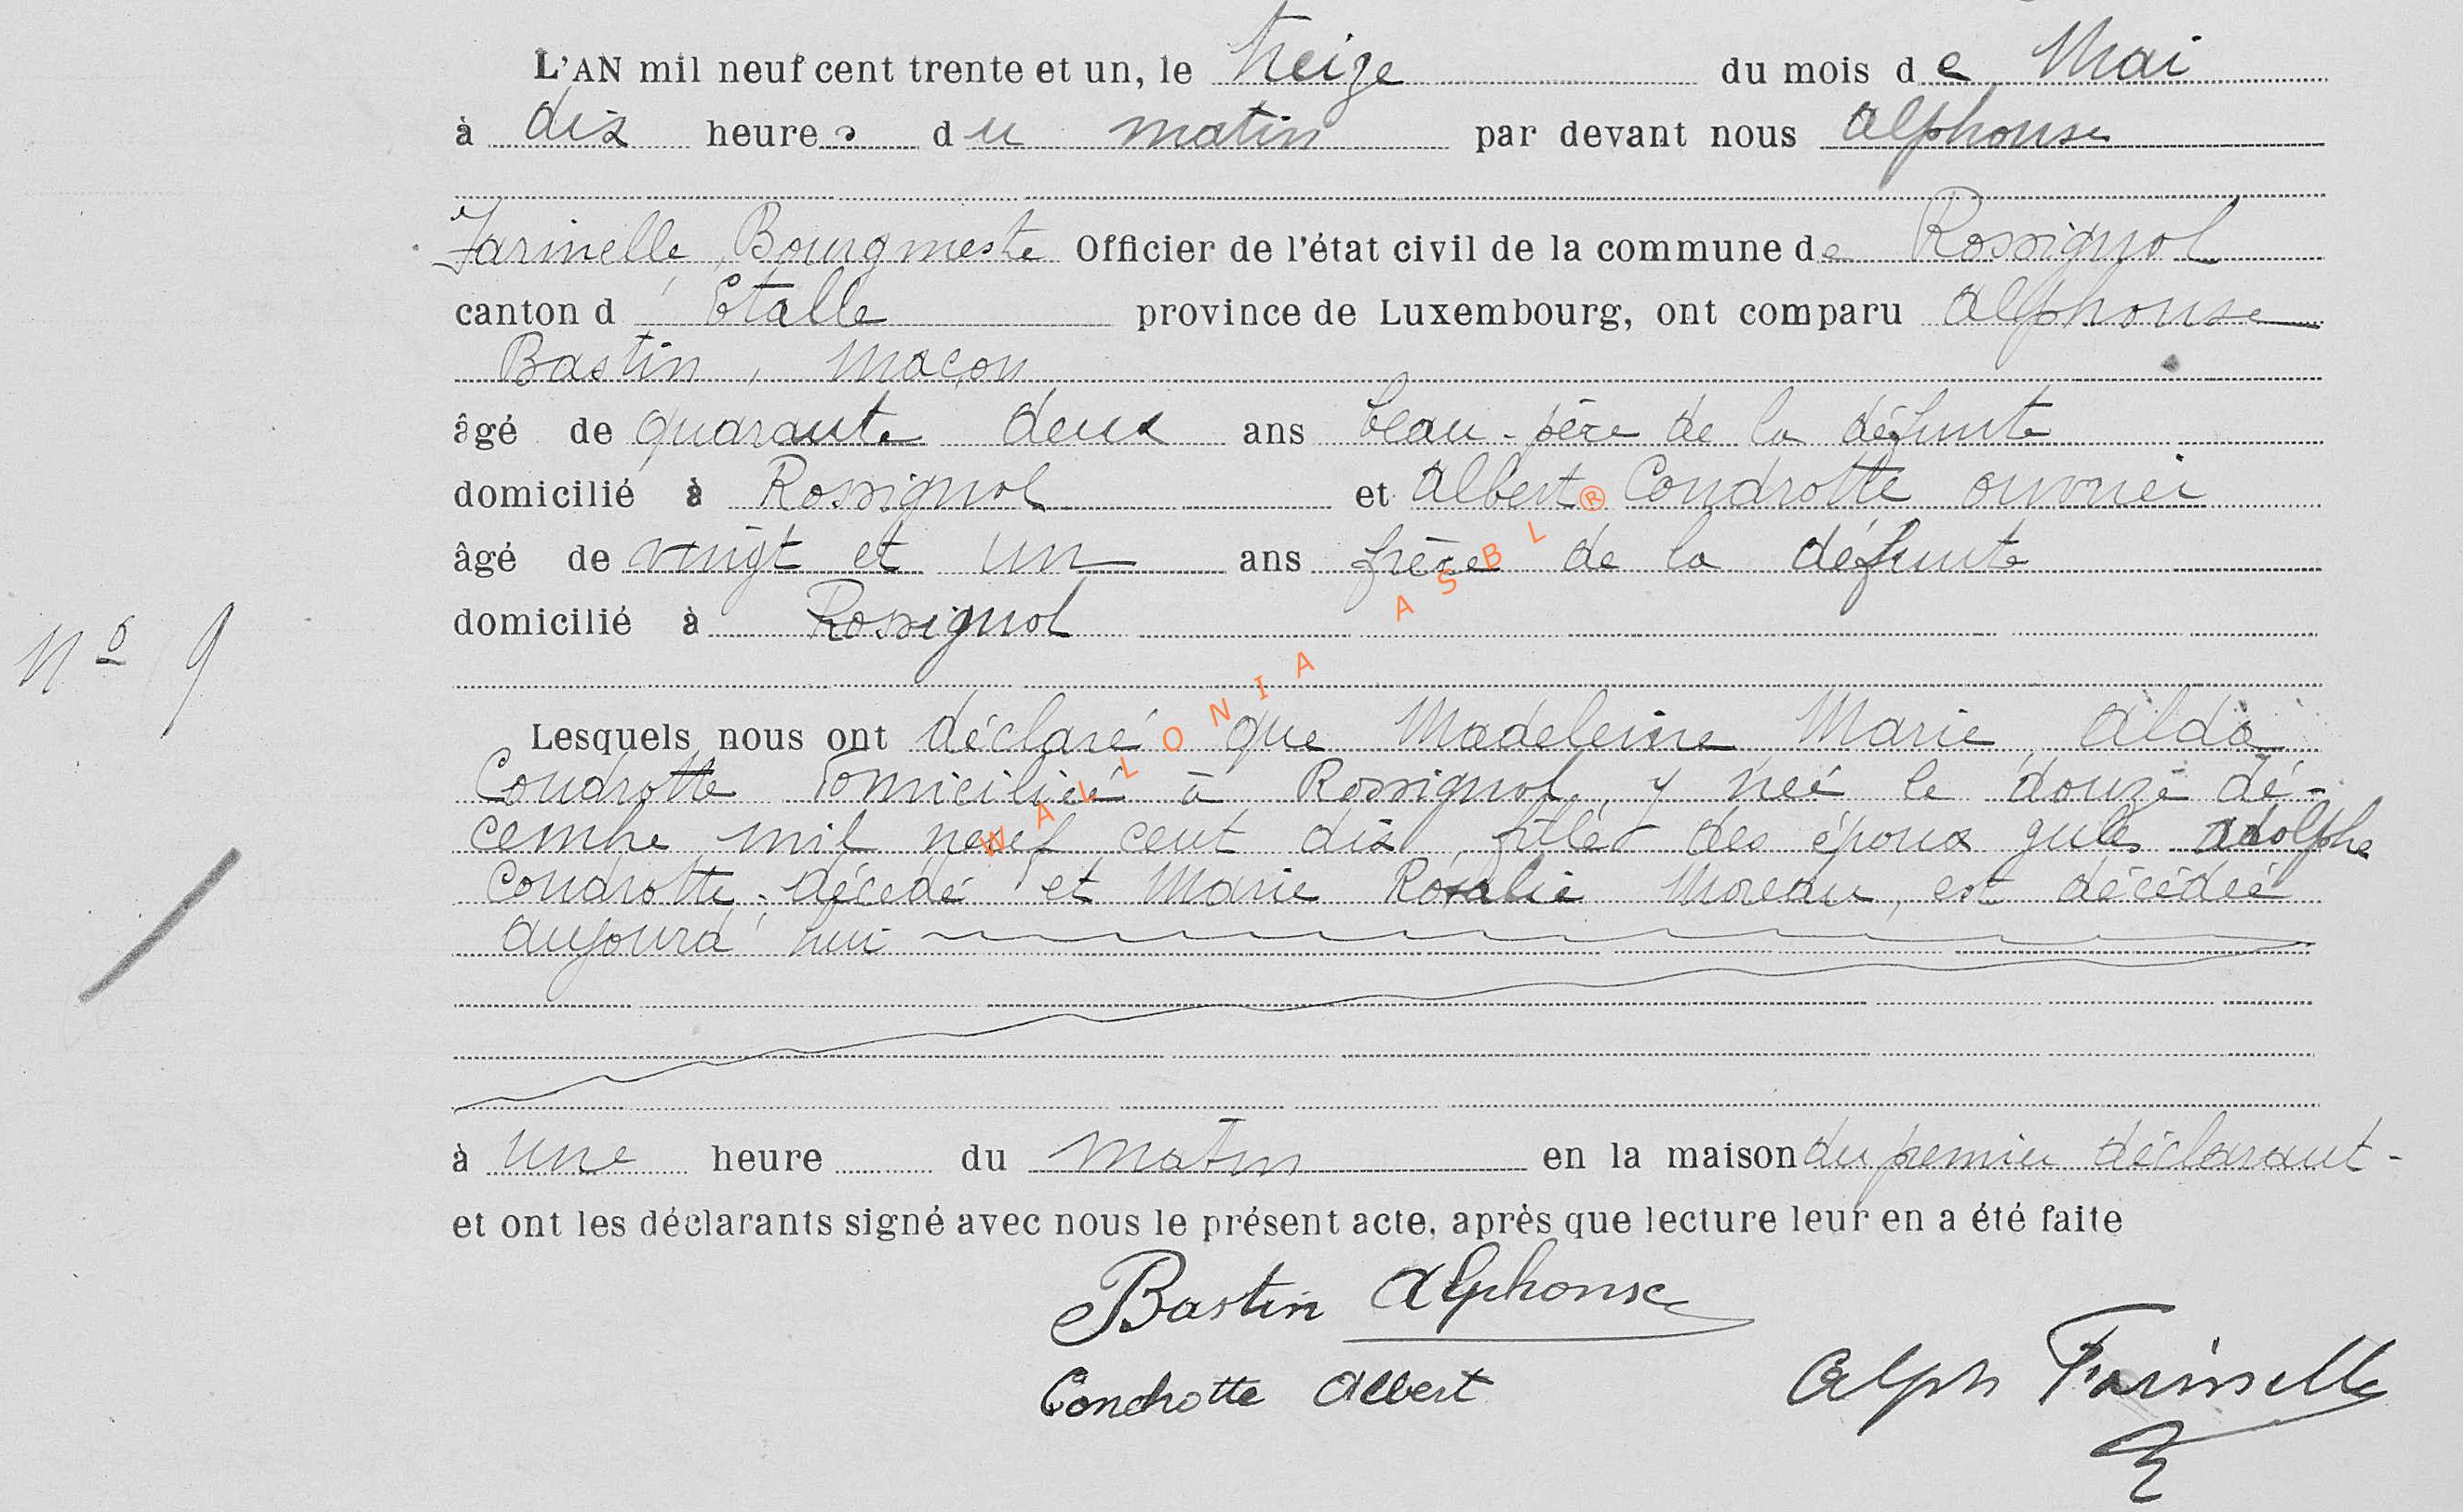 L'AN mil neuf cent trente et un, le treize du mois de Mai
à dix heures du matin par devant nous Alphonse
Farinelle, Bourgmestre Officier de l'état civil de la commune de Rossignol
canton d'Etalle province de Luxembourg, ont comparu Alphonse
Bastin, maçon
âgé de quarante deux ans beau-père de la défunte
domicilié à Rossignol et Albert Condrotte ouvrier
âgé de vingt et un ans frère de la défunte
domicilié à Rossignol
Nº 9
Lesquels nous ont déclaré que Madeleine Marie Alda
Condrotte domiciliée à Rossignol, y née le douze dé-
cembre mil neuf cent dix, fille des époux Jules Adolphe
Condrotte, décédé et Marie Rosalie Moreau, est décédée
aujourd'hui
à une heure du matin en la maison du premier déclarant-
et ont les déclarants signé avec nous le présent acte, après que lecture leur en a été faite
Bastin Alphonse
Condrotte Albert
Alph Farinelle
WALLONIA ASBL ®